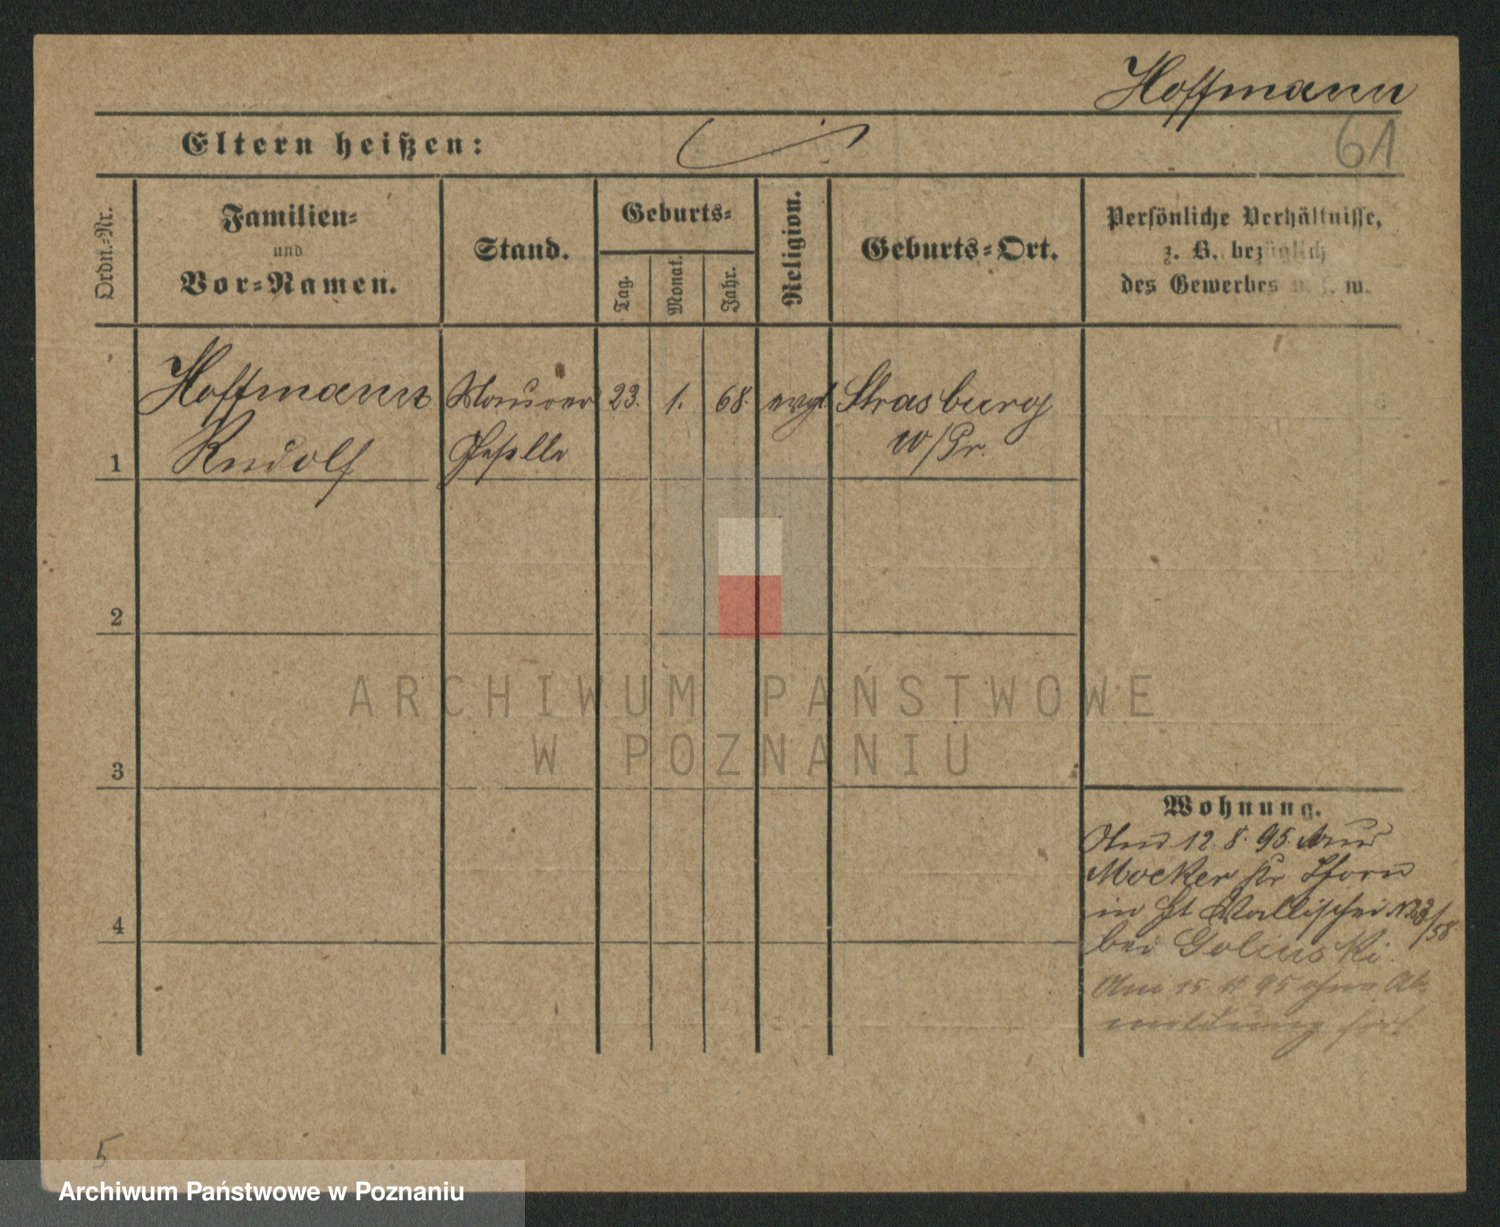 Hoffmann
61
Eltern heißen:
Ordn.-Nr.
Familien-
und
Vor-Namen.
Stand.
Geburts-
Tag.
Monat.
Jahr.
Religion.
Geburts-Ort.
Persönliche Verhältnisse,
z. B. bezüglich
des Gewerbes u. s. w.
Hoffmann Maurer 23. 1. 68. evgl Strasburg
1 Rudolf Geselle W/Pr.
2
ARCHIWUM PAŃSTWOWE
W POZNANIU
3
Wohnung.
Am 12. 8. 95. aus
Mocker Kr Thorn
in St Wallischei
4
bei Golinski
Am 15 95 ohne Ab
meldung fort
5
Archiwum Państwowe w Poznaniu